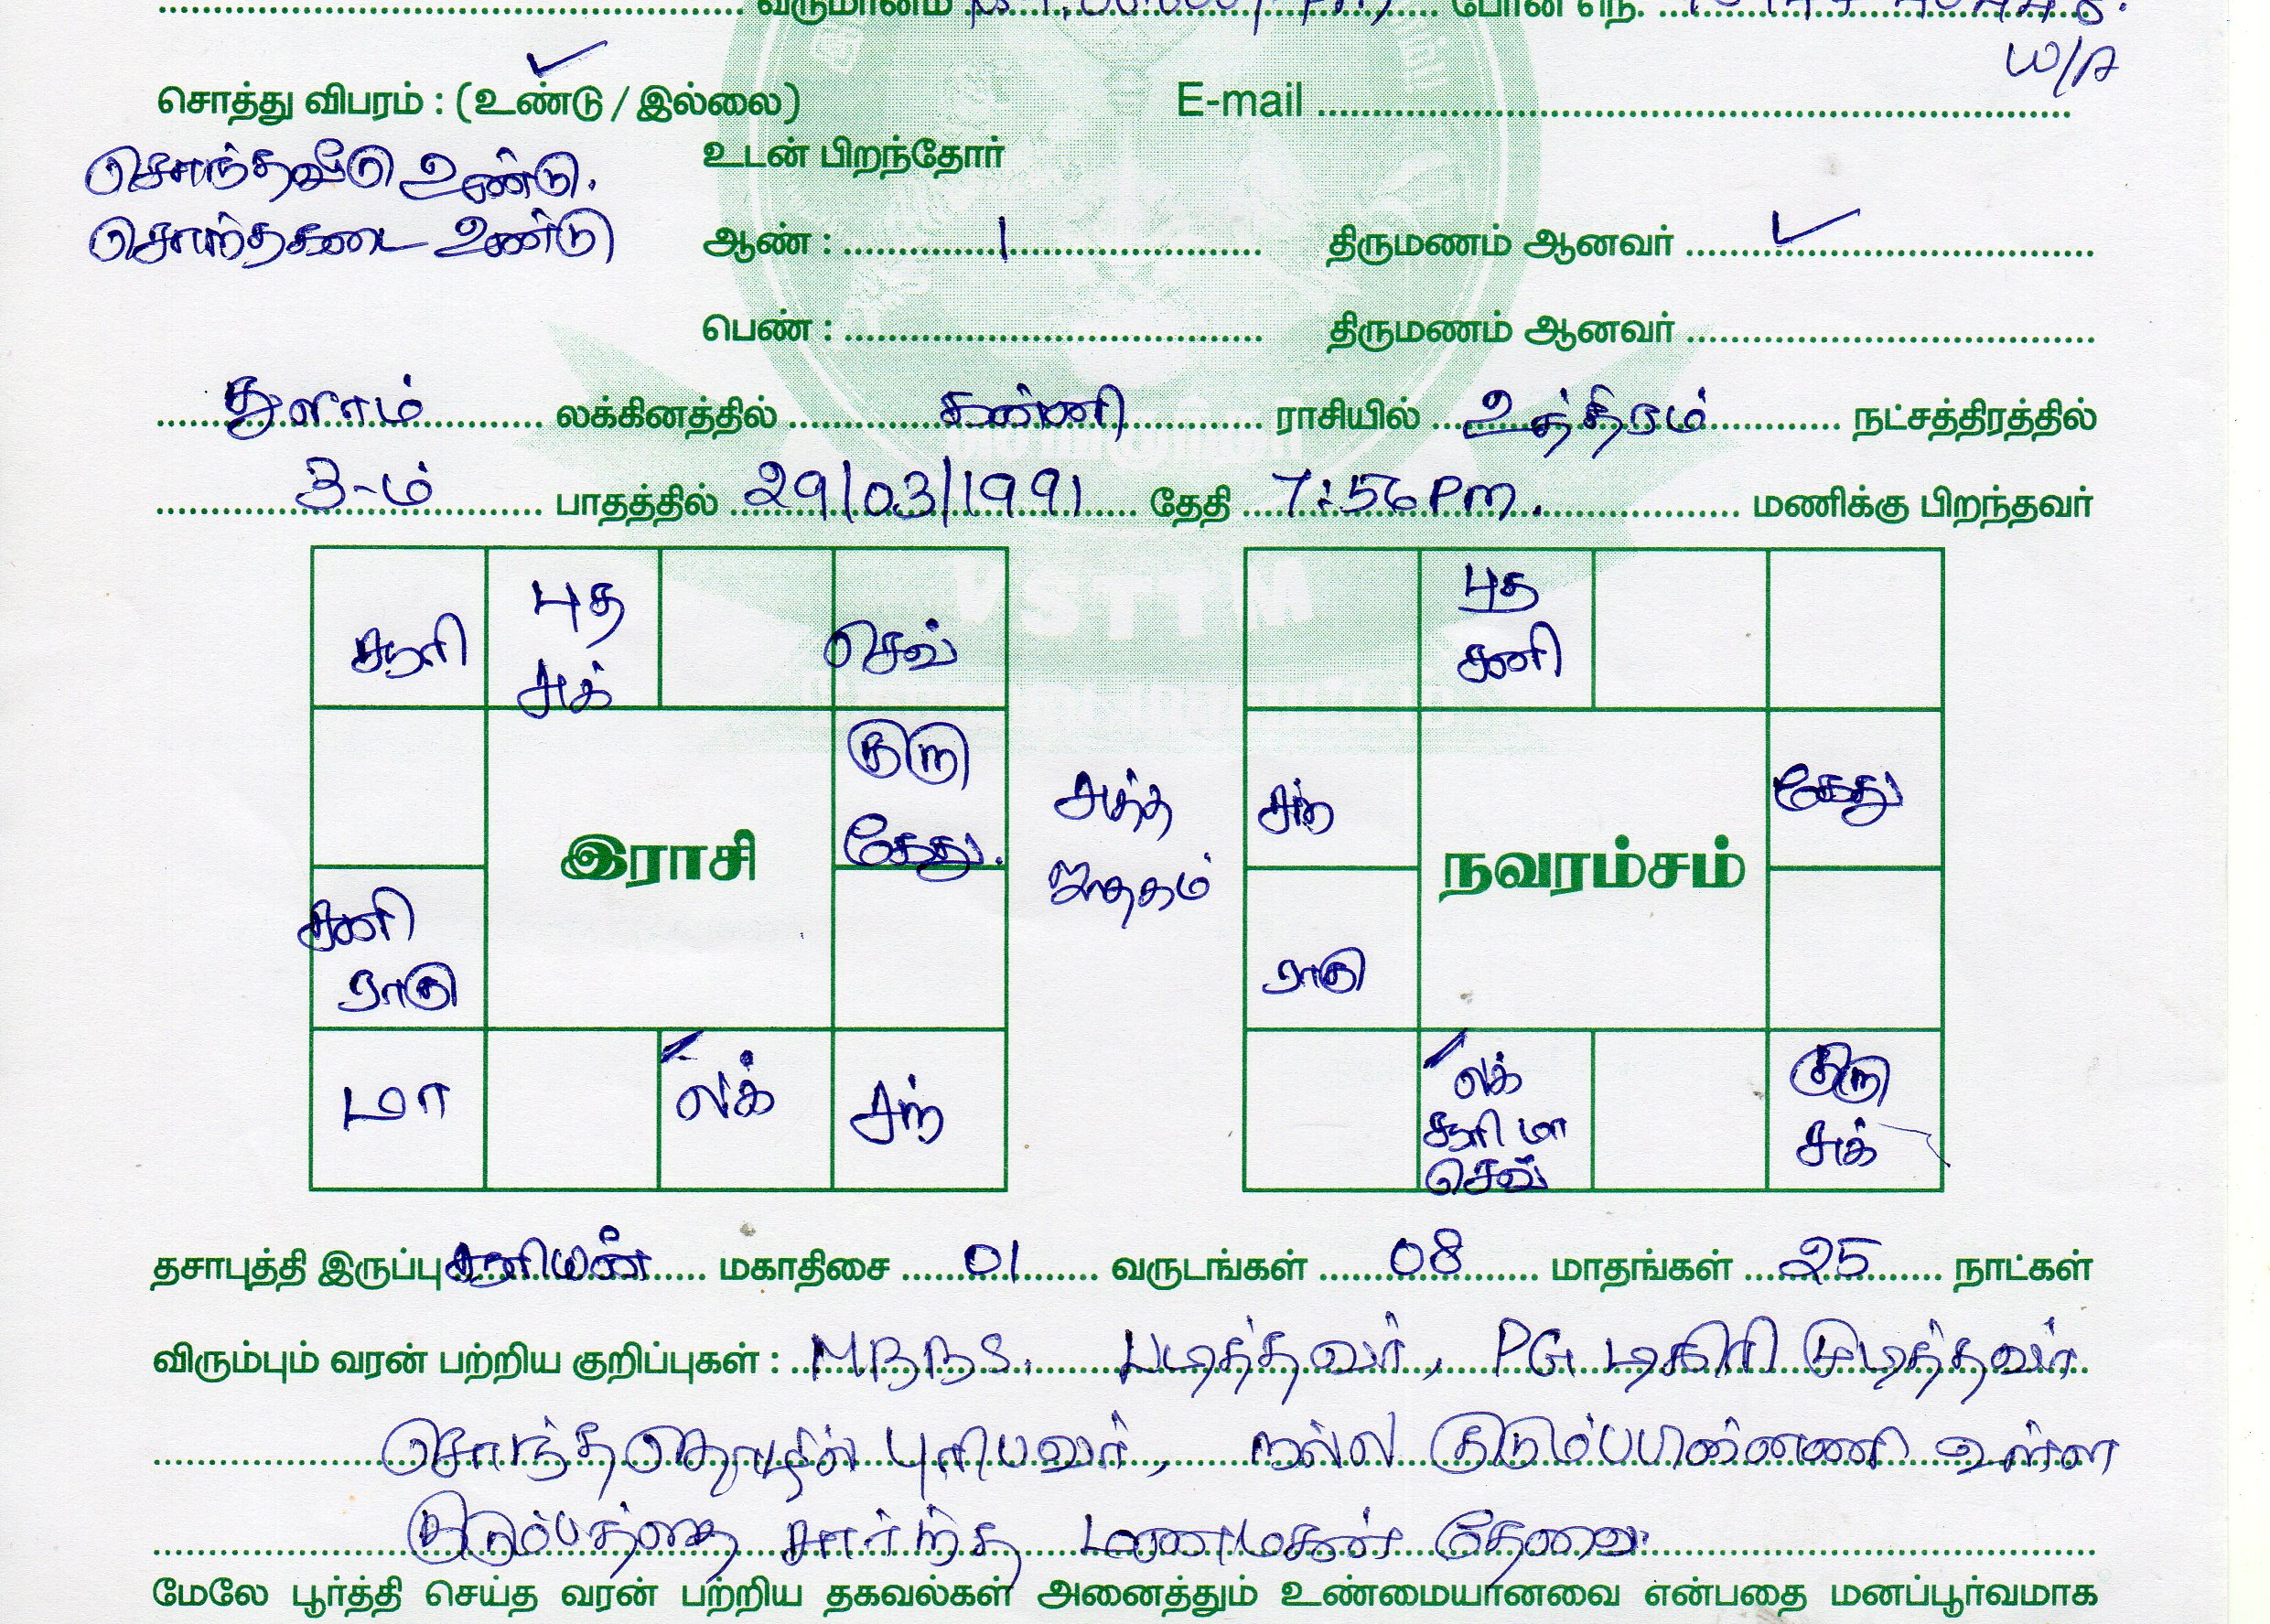 வருமானம் போன் எந்.
W/A
சொத்து விபரம் : (உண்டு / இல்லை) E-mail
சொந்தவீடு உண்டு.
உடன் பிறந்தோர்
சொந்தகடை உண்டு
ஆண் : 1 திருமணம் ஆனவர் ✓
பெண் : திருமணம் ஆனவர்
துலாம் லக்கினத்தில் கன்னி ராசியில் உத்திரம் நட்சத்திரத்தில்
3-ம் பாதத்தில் 29/03/1991 தேதி 7:56 Pm. மணிக்கு பிறந்தவர்
சூரி
புத
சுக்
செவ்
குரு
கேது.
இராசி
சனி
ராகு
மா
லக்
சந்
சுத்த
ஜாதகம்
புத
சனி
சந்
கேது
நவரம்சம்
ராகு
லக்
சூரி மா
செவ்
குரு
சுக்
தசாபுத்தி இருப்பு சூரியன் மகாதிசை 01 வருடங்கள் 08 மாதங்கள் 25 நாட்கள்
விரும்பும் வரன் பற்றிய குறிப்புகள் : MBBS. படித்தவர், PG டிகிரி முடித்தவர்
சொந்த தொழில் புரிபவர், நல்ல குடும்பபின்னணி உள்ள
குடும்பத்தை சார்ந்த மணமகன் தேவை
மேலே பூர்த்தி செய்த வரன் பற்றிய தகவல்கள் அனைத்தும் உண்மையானவை என்பதை மனப்பூர்வமாக